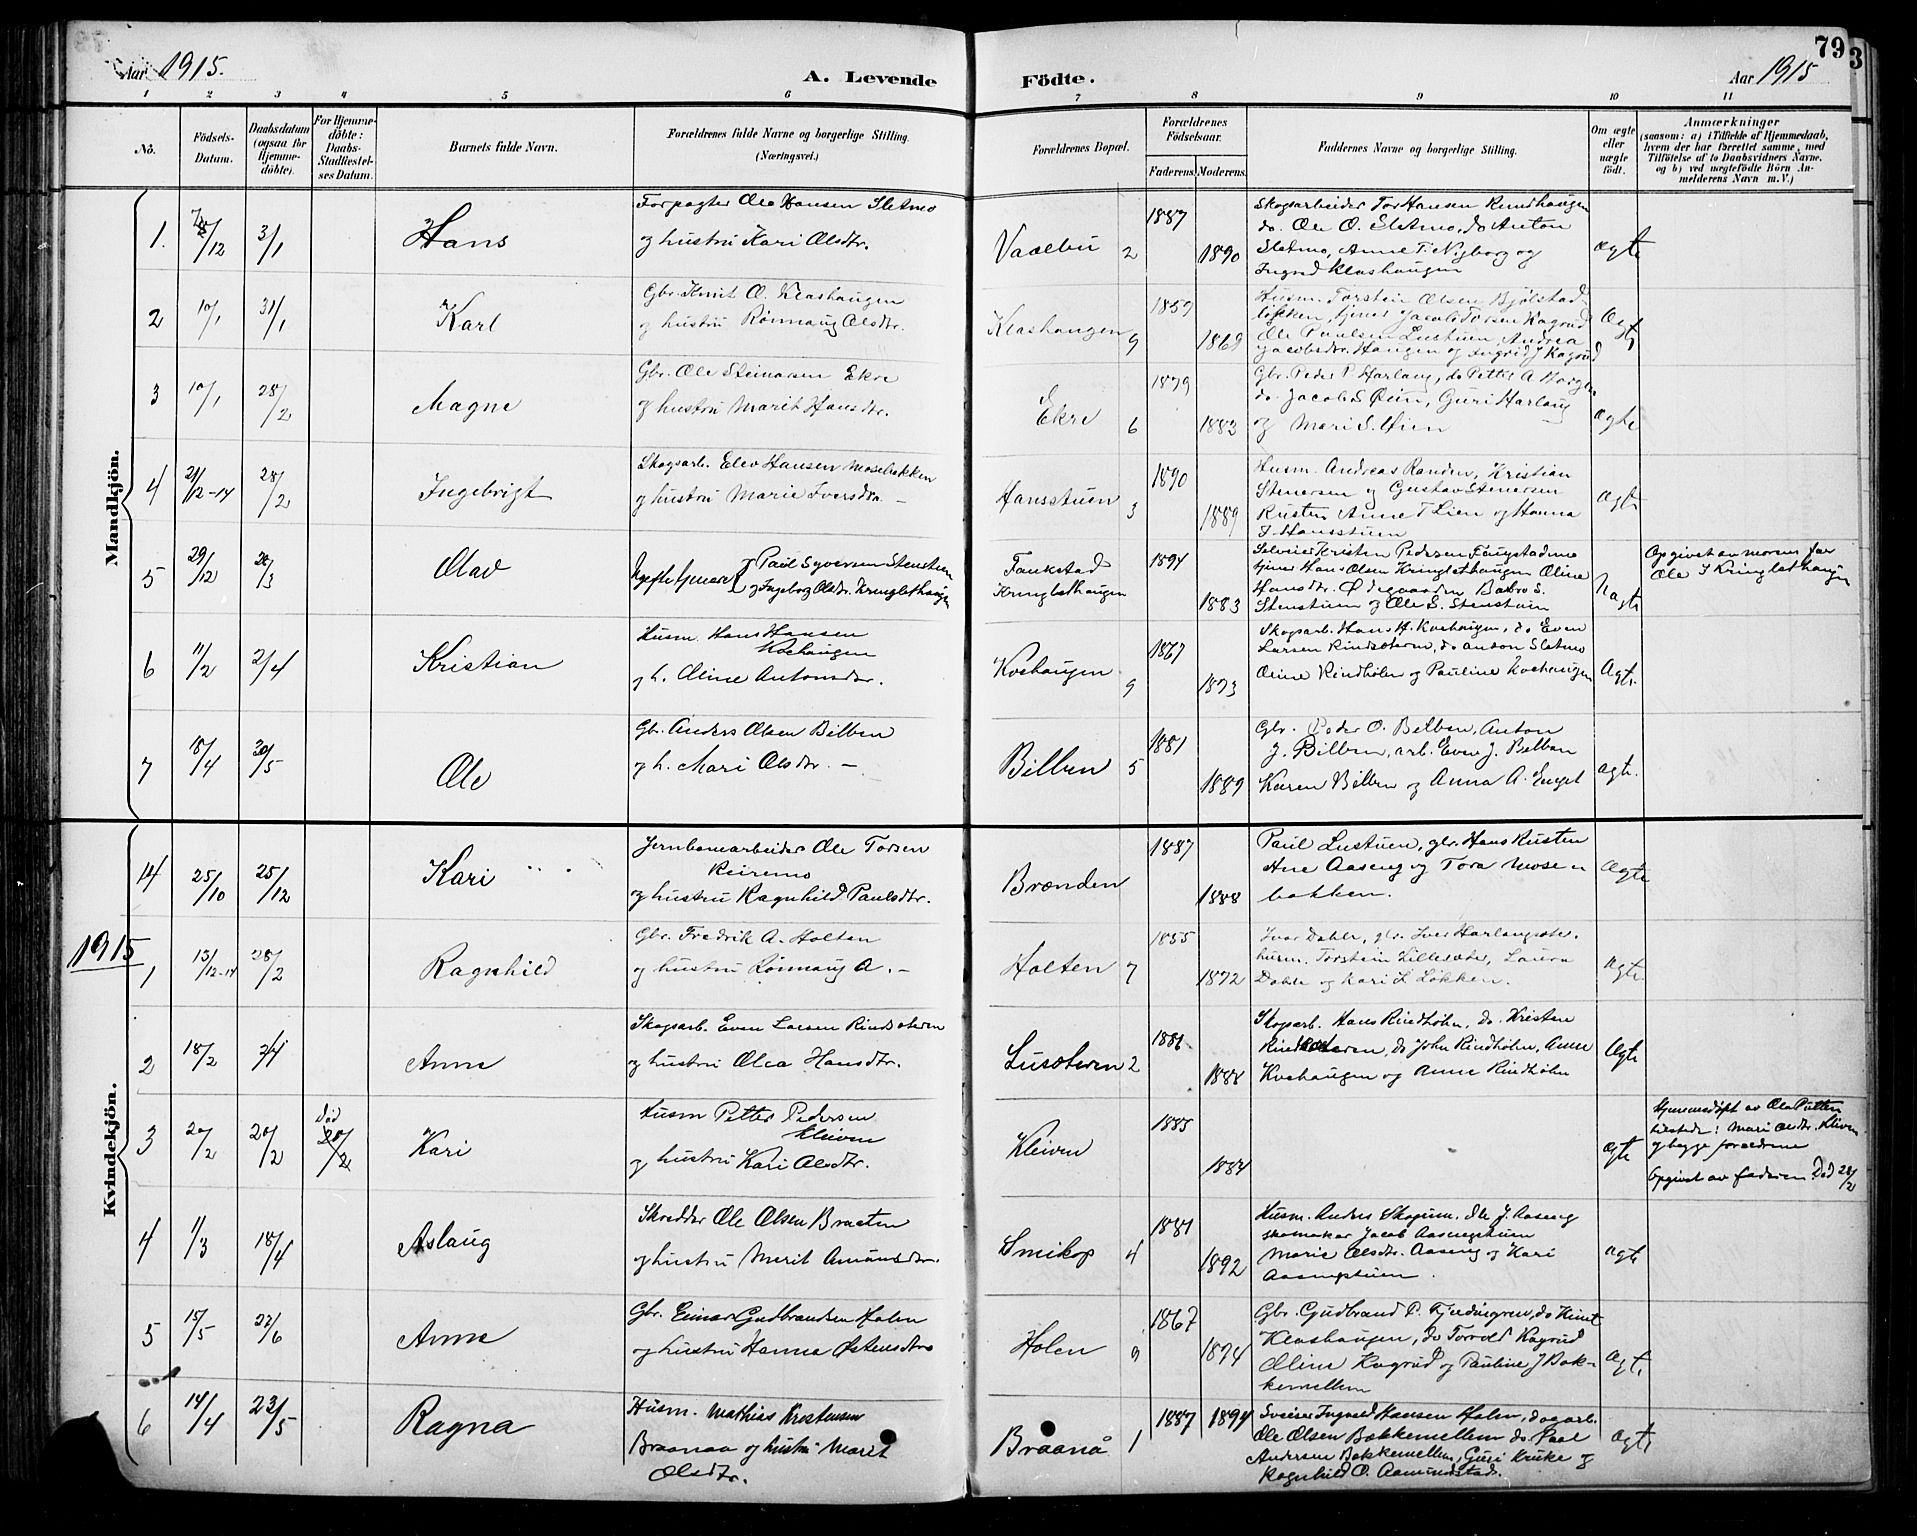 79
3
Aar 1915.
A. Levende
Födte.
Aar 1915
1 2 3 4 5 6 7 8 9 10 11
No.
Födsels-
Datum.
Daabsdatum
(ogsaa for
Hjemme-
döbte).
For Hjemme-
döbte:
Daabs-
Stadfæstel-
ses Datum.
Barnets fulde Navn.
Forældrenes fulde Navne og borgerlige Stilling.
(Næringsvei.)
Forældrenes Bopæl.
Forældrenes
Födselsaar.
Faderens. Moderens.
Faddernes Navne og borgerlige Stilling.
Om ægte
eller
uægte
födt.
Anmærkninger
(saasom: a) i Tilfælde af Hjemmedaab,
hvem der har forrettet samme, med
Tilföielse af to Daabsvidners Navne,
og b) ved uægtefödte Börn An-
melderens Navn m. V.)
Mandkjön.
1. /12 3/1
Hans
Forpagter Ole Hansen Sletmo
og hustru Kari Olsdtr.
Vaalbu 2
1887
1890
Skogsarbeider Tor Hansen Rindhaugen
do. Ole O. Sletmo, do Anton
Sletmo, Anne T. Nyborg og
Ingrid Klashaugen
Ægte
2 10/1 31/1
Karl
Gbr. Knut O. Klashaugen
og hustru Rønnaug Olsdtr.
Klashaugen 9
1859
1869
Husm. Torstein Olsen Bjølstad-
løkken, tjener Jacob Torsen Kagrud
Ole Paulsen Lustuen, Andrea
Jacobsdtr. Haugen og Ingrid J Kagrud
Ægte
3 10/1 28/2
Magne
Gbr. Ole Steinarsen Ekre
og hustru Marit Hansdtr.
Ekre 6
1879
1883
Gbr. Peder P. Harlaug, do Petter A Borgen
do. Jacob S Øien, Guri Harlaug
og Mari S. Øien
Ægte
4 21/12-14 28/2
Ingebrigt
Skogsarb. Elev Hansen Mosebakken
og hustru Marie Iversdtr. —
Hansstuen 3
1890
1889
Husm. Andreas Randen, Kristian
Stenersen og Gustav Stenersen
Rusten Anne T Lien og Hanna
J. Hansstuen
Ægte
5 29/12 /3
Olav
Ugifte Gmare Paul Syversen Stenstuen
og Ingeborg Olsdtr. Kringlethaugen
Faukstad
Kringlethaugen
1894
1883
Selveier Kristen Pedersen Faugstadmo
tjener Hans Olsen Kringlethaugen Oline
Hansdtr. Ødegaarden Babro S.
Stenstuen og Ole S. Stenstuen
Uægte
Opgivet av morens far
Ole I Kringlethaugen
6 11/2 2/4
Kristian
Husm. Hans Hansen
Kvehaugen
og h. Oline Antonsdtr.
Kvehaugen 9
1867
1873
Skogsarb. Hans H. Kvehaugen, do Even
Larsen Rindsæteren, do Anton Sletmo
Oline Rindhølen og Pauline Kvehaugen
Ægte.
7 8/4 30/5
Ole
Gbr. Anders Olsen Bilben
og h. Mari Olsdtr. —
Bilben 5
1881
1889
Gbr. Peder O. Bilben, Anton
J. Bilben, arb. Even J. Bilben
Karen Bilben og Anna A. Engel
Ægte.
Kvindekjön.
14 25/10 25/12
Kari
Jernbanearbeider Ole Torsen
Reiremo
og hustru Ragnhild Paulsdtr.
Brænden
1887
1888
Paul Lustuen, gbr. Hans Rusten
Ane Aaseng og Tora Mose n
bakken.
Ægte
1915
1 13/12-14 28/2
Ragnhild
Gbr. Fredrik A. Holten
og hustru Rønnaug A. —
Holten 7
1855
1872
Ivar Dahle, gbr. Iver Harlaugsæter.
husm. Torstein Lillesæter, Laura
Dahle og Kari L Løkken.
Ægte
2 18/2 2/4
Anne
Skogsarb. Even Larsen Rindsæteren
og hustru Olea Hansdtr.
Lusæteren 2
1886
1888
Skogsarb. Hans Rindhølen, do. Kristen
Rindsæteren, do John Rindhølen, Anne
Kvehaugen og Anne Rindhølen
Ægte
3 20/2 20/2
Død 28/2
Kari
Husm Petter Pedersen
Kleiven
og hustru Kari Olsdtr.
Kleiven
1885
1884
Ægte
Hjemmedøpt av Ole Pulten
tilstede: Mari Olsdtr. Kleiven
og begge forældrene
Opgivet av faderen. Død 28/2
4 1/3 18/4
Aslaug
Skredder Ole Olsen Braaten
og hustru Marit Amundsdtr.
Smikop 4
1881
1892
Husm. Anders Skogum. Ole J. Aaseng
skomaker Jacob Aasengstuen
Marie Olsdtr. Aaseng og Kari
Aasengstuen.
Ægte
5 15/5 27/6
Anne
Gbr. Einar Gudbrandsen Holen
og hustru Hanna Østensdtr
Holen 9
1867
1874
Gbr. Gudbrand P. Fjerdingren, do Knut
Klashaugen, do Torvold Kagrud
Oline Kagrud og Pauline J Bak-
kemellem
Ægte
6 14/4 23/5
Ragna
Husm. Mathias Kristensen
Braanaa og hustru Marit
Olsdtr.
Braanå 1
1887 1894
Sveiser Ingvald Hansen Holen, dagarb.
Ole Olsen Bakkemellem do. Paal
Andersen Bakkemellem, Guri Kruke og
Ragnhild O. Aamundstad.
Ægte